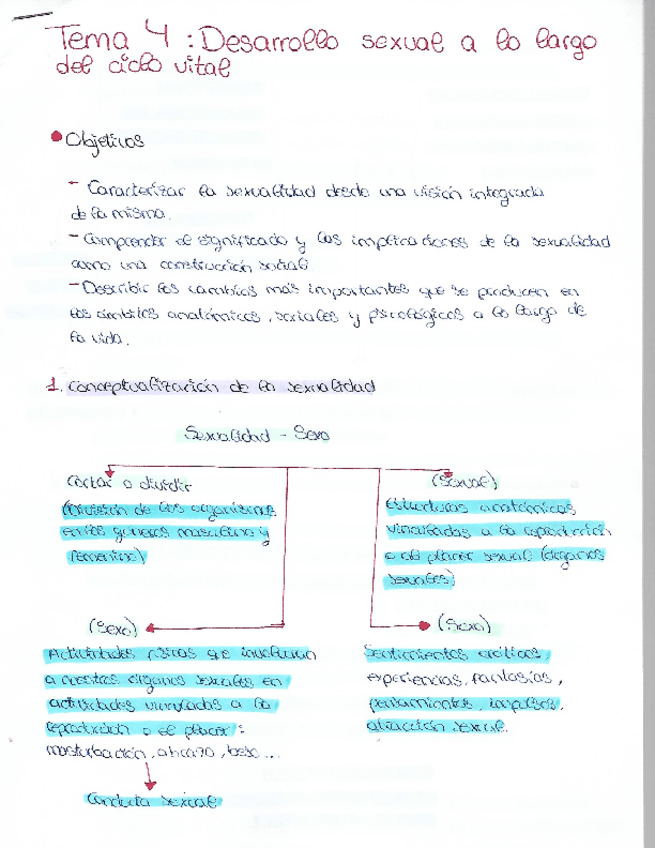 Tema 4 : Desarrollo sexual a lo largo
del ciclo vital
Objetivos
- Caracterizar la sexualidad desde una visión integrada
de la misma.
- Comprender el significado y las implicaciones de la sexualidad
como una construcción social
- Describir los cambios más importantes que se producen en
los ámbitos anatómicos, sociales y psicológicos a lo largo de
la vida.
1. Conceptualización de la sexualidad
Sexualidad - Sexo
Cortar o dividir
(División de los organismos
en los géneros masculino y
femenino)
(Sexual)
Estructuras anatómicas
vinculadas a la reproducción
o al placer sexual (órganos
sexuales)
(Sexo)
Actividades físicas que involucran
a nuestros órganos sexuales en
actividades vinculadas a la
reproducción o el placer :
masturbación, abrazo, beso...
Conducta sexual
(Sexo)
Sentimientos eróticos,
experiencias, fantasías,
pensamientos, impulsos,
atracción sexual.